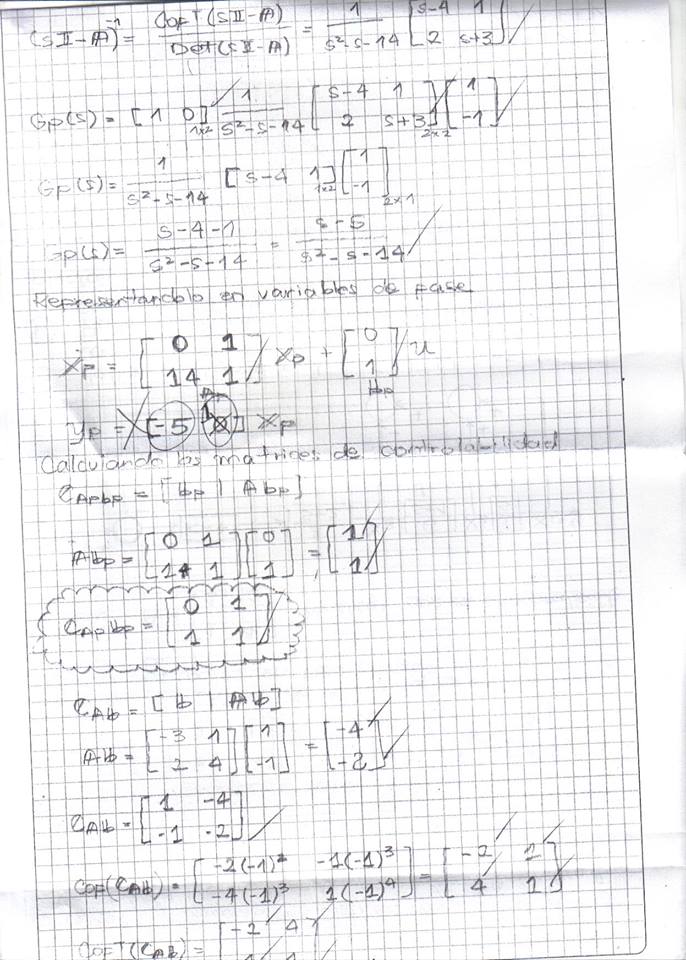 (sII-A)⁻¹ = Cof T(sII-A) / Det(sII-A) = 1/(s²-s-14) [s-4 1; 2 s+3]
Gp(s) = [1 0]1x2 1/(s²-s-14) [s-4 1; 2 s+3]2x2 [1; -1]
Gp(s) = 1/(s²-s-14) [s-4 1]1x2 [1; -1]2x1
Gp(s) = (s-4-1)/(s²-s-14) = (s-5)/(s²-s-14)
Representandolo en variables de fase
Ẋp = [0 1; 14 1] Xp + [0; 1] u
Ap bp
yp = [-5 1] Xp
Calculando las matrices de controlabilidad
CApbp = [bp | Abp]
Abp = [0 1; 14 1] [0; 1] = [1; 1]
CApbp = [0 1; 1 1]
CAb = [b | Ab]
Ab = [-3 1; 2 4] [1; -1] = [-4; -2]
CAb = [1 -4; -1 -2]
Cof(CAb) = [-2(-1)² -1(-1)³; -4(-1)³ 1(-1)⁴] = [-2 1; 4 1]
Cof T(CAb) = [-2 4